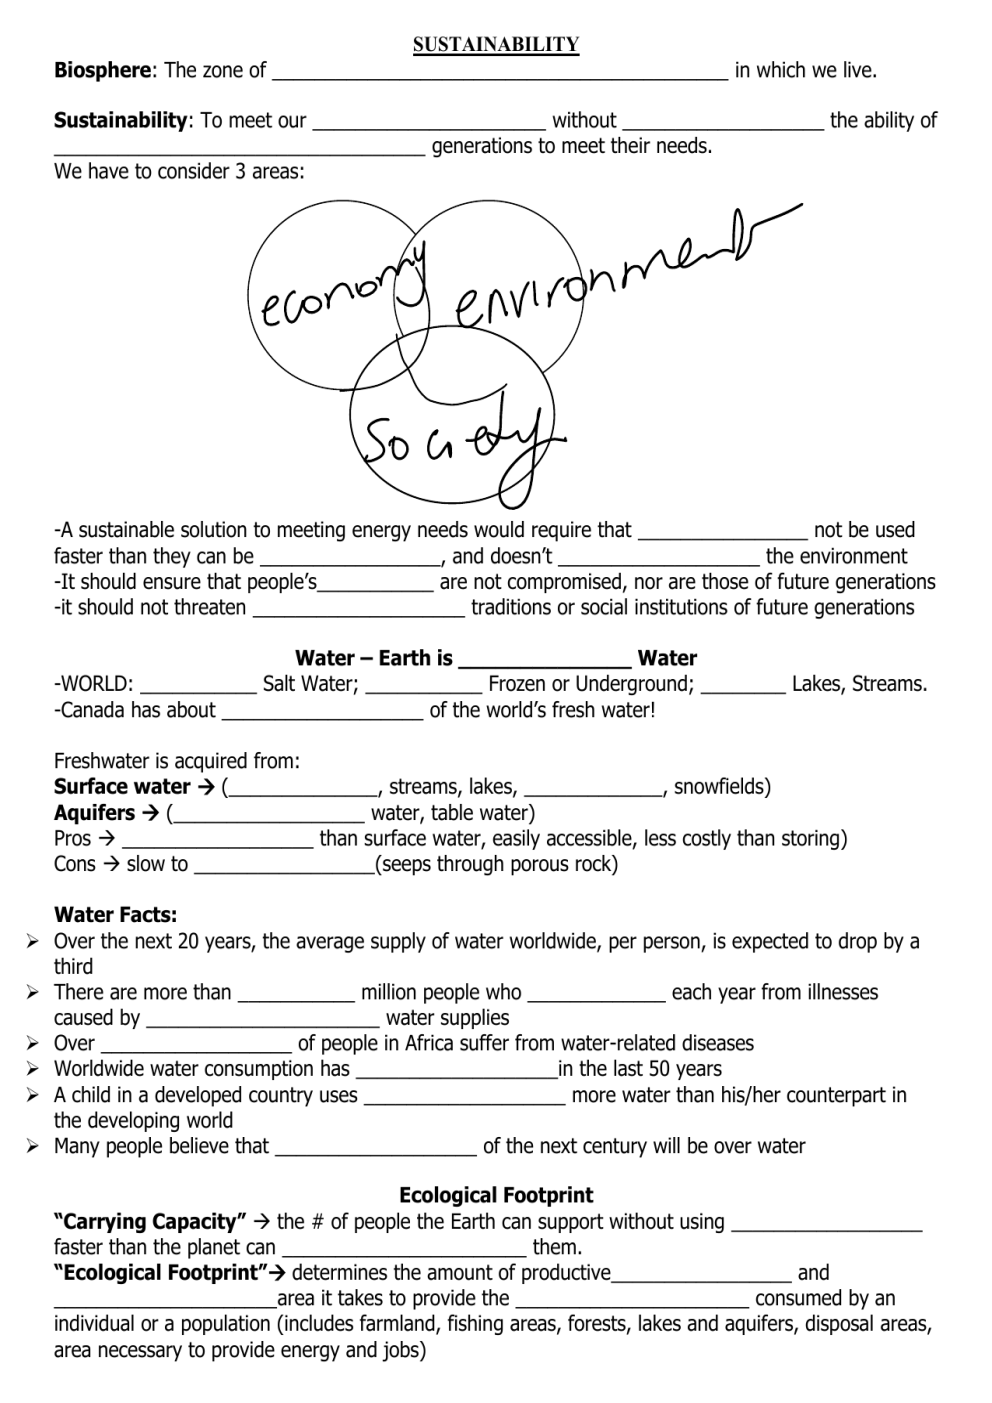 SUSTAINABILITY
Biosphere: The zone of ______________________________________ in which we live.
Sustainability: To meet our ______________________ without ___________________ the ability of
___________________________________ generations to meet their needs.
We have to consider 3 areas:
economy
environment
Society
-A sustainable solution to meeting energy needs would require that ________________ not be used
faster than they can be _________________, and doesn't ___________________ the environment
-It should ensure that people's___________ are not compromised, nor are those of future generations
-it should not threaten ____________________ traditions or social institutions of future generations
Water – Earth is _______________ Water
-WORLD: ___________ Salt Water; ___________ Frozen or Underground; ________ Lakes, Streams.
-Canada has about ___________________ of the world's fresh water!
Freshwater is acquired from:
Surface water → (______________, streams, lakes, _____________, snowfields)
Aquifers → (__________________ water, table water)
Pros → __________________ than surface water, easily accessible, less costly than storing)
Cons → slow to _________________(seeps through porous rock)
Water Facts:
➢ Over the next 20 years, the average supply of water worldwide, per person, is expected to drop by a
third
➢ There are more than ___________ million people who _____________ each year from illnesses
caused by ______________________ water supplies
➢ Over __________________ of people in Africa suffer from water-related diseases
➢ Worldwide water consumption has ___________________in the last 50 years
➢ A child in a developed country uses ___________________ more water than his/her counterpart in
the developing world
➢ Many people believe that ___________________ of the next century will be over water
Ecological Footprint
"Carrying Capacity" → the # of people the Earth can support without using __________________
faster than the planet can _______________________ them.
"Ecological Footprint"→ determines the amount of productive_________________ and
_____________________area it takes to provide the ______________________ consumed by an
individual or a population (includes farmland, fishing areas, forests, lakes and aquifers, disposal areas,
area necessary to provide energy and jobs)